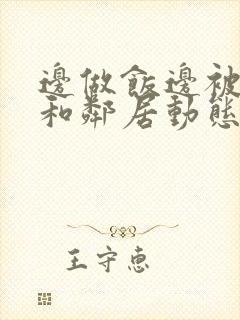 邊做飯邊被
和鄰居動態
王守惠